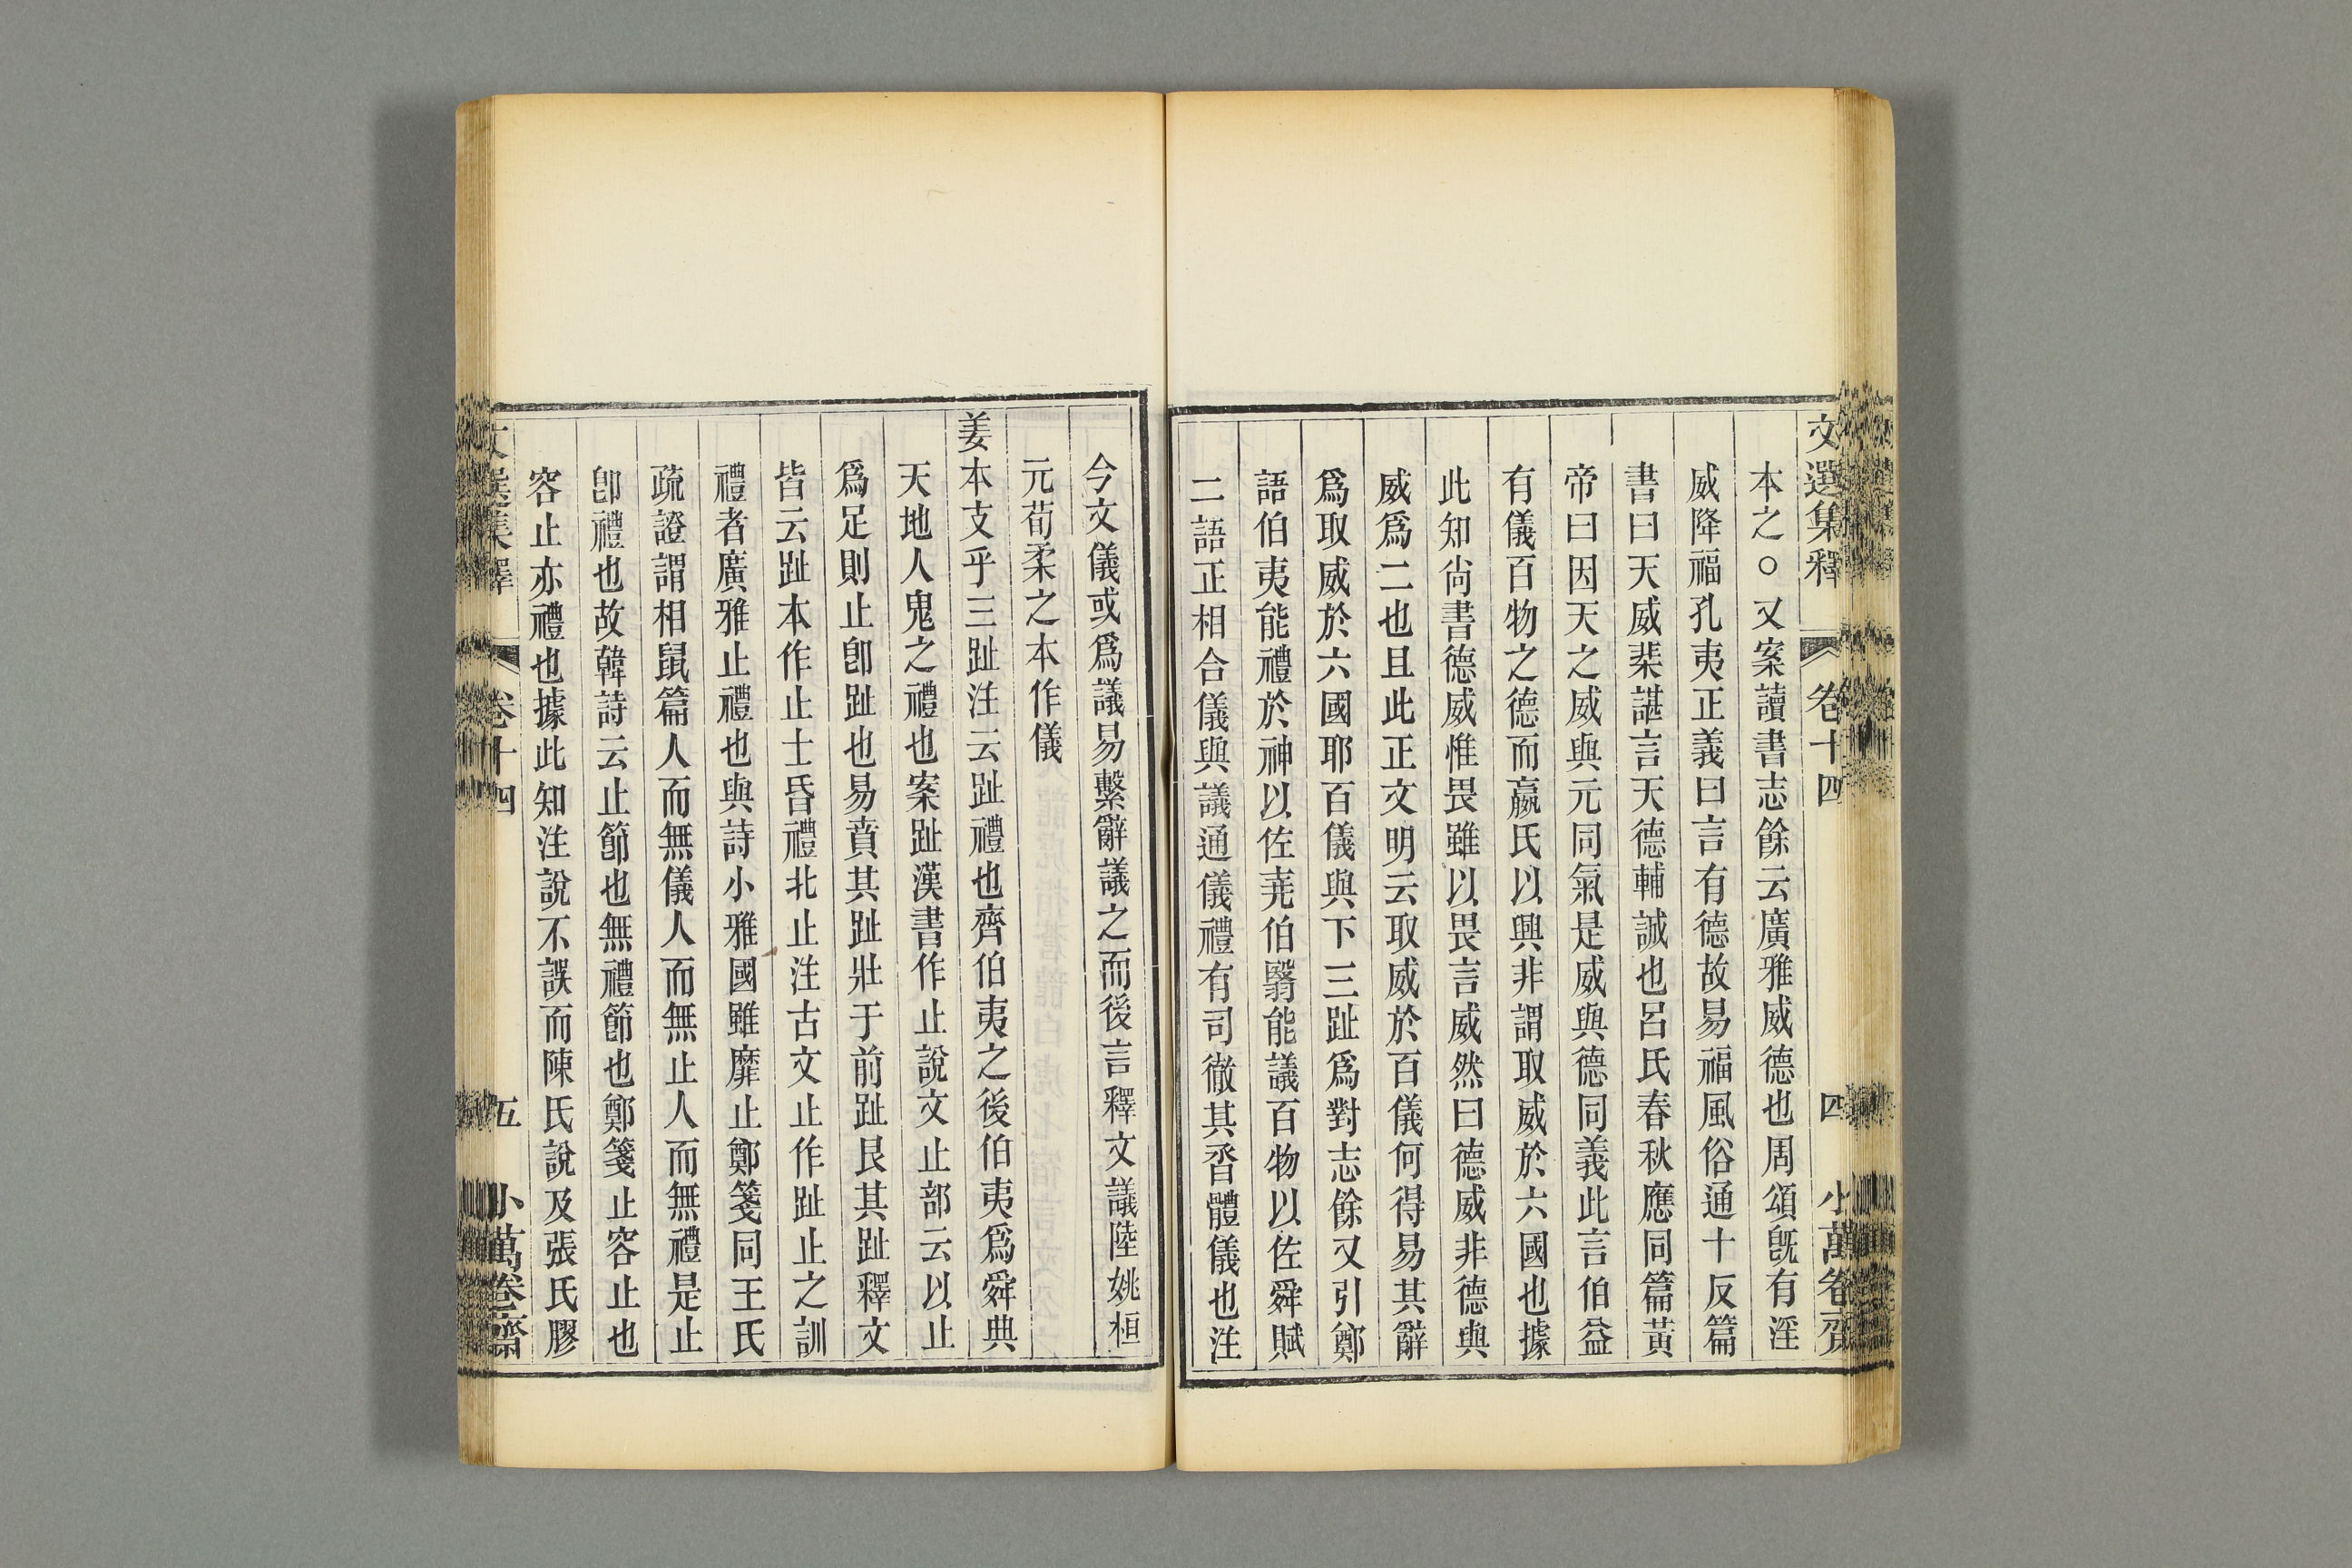 文選集釋 卷十四 四 小萬卷齋
本之○又案讀書志餘云廣雅威德也周頌旣有淫
威降福孔夷正義曰言有德故易福風俗通十反篇
書曰天威棐諶言天德輔誠也呂氏春秋應同篇黃
帝曰因天之威與元同氣是威與德同義此言伯益
有儀百物之德而嬴氏以興非謂取威於六國也據
此知尙書德威惟畏雖以畏言威然曰德威非德與
威爲二也且此正文明云取威於百儀何得易其辭
爲取威於六國耶百儀與下三趾爲對志餘又引鄭
語伯夷能禮於神以佐堯伯翳能議百物以佐舜賦
二語正相合儀與議通儀禮有司徹其脀體儀也注
今文儀或爲議易繫辭議之而後言釋文議陸姚桓
元荀柔之本作儀
姜本支乎三趾注云趾禮也齊伯夷之後伯夷爲舜典
天地人鬼之禮也案趾漢書作止說文止部云以止
爲足則止卽趾也易賁其趾壯于前趾艮其趾釋文
皆云趾本作止士昏禮北止注古文止作趾止之訓
禮者廣雅止禮也與詩小雅國雖靡止鄭箋同王氏
疏證謂相鼠篇人而無儀人而無止人而無禮是止
卽禮也故韓詩云止節也無禮節也鄭箋止容止也
容止亦禮也據此知注說不誤而陳氏說及張氏膠
文選集釋 卷十四 五 小萬卷齋